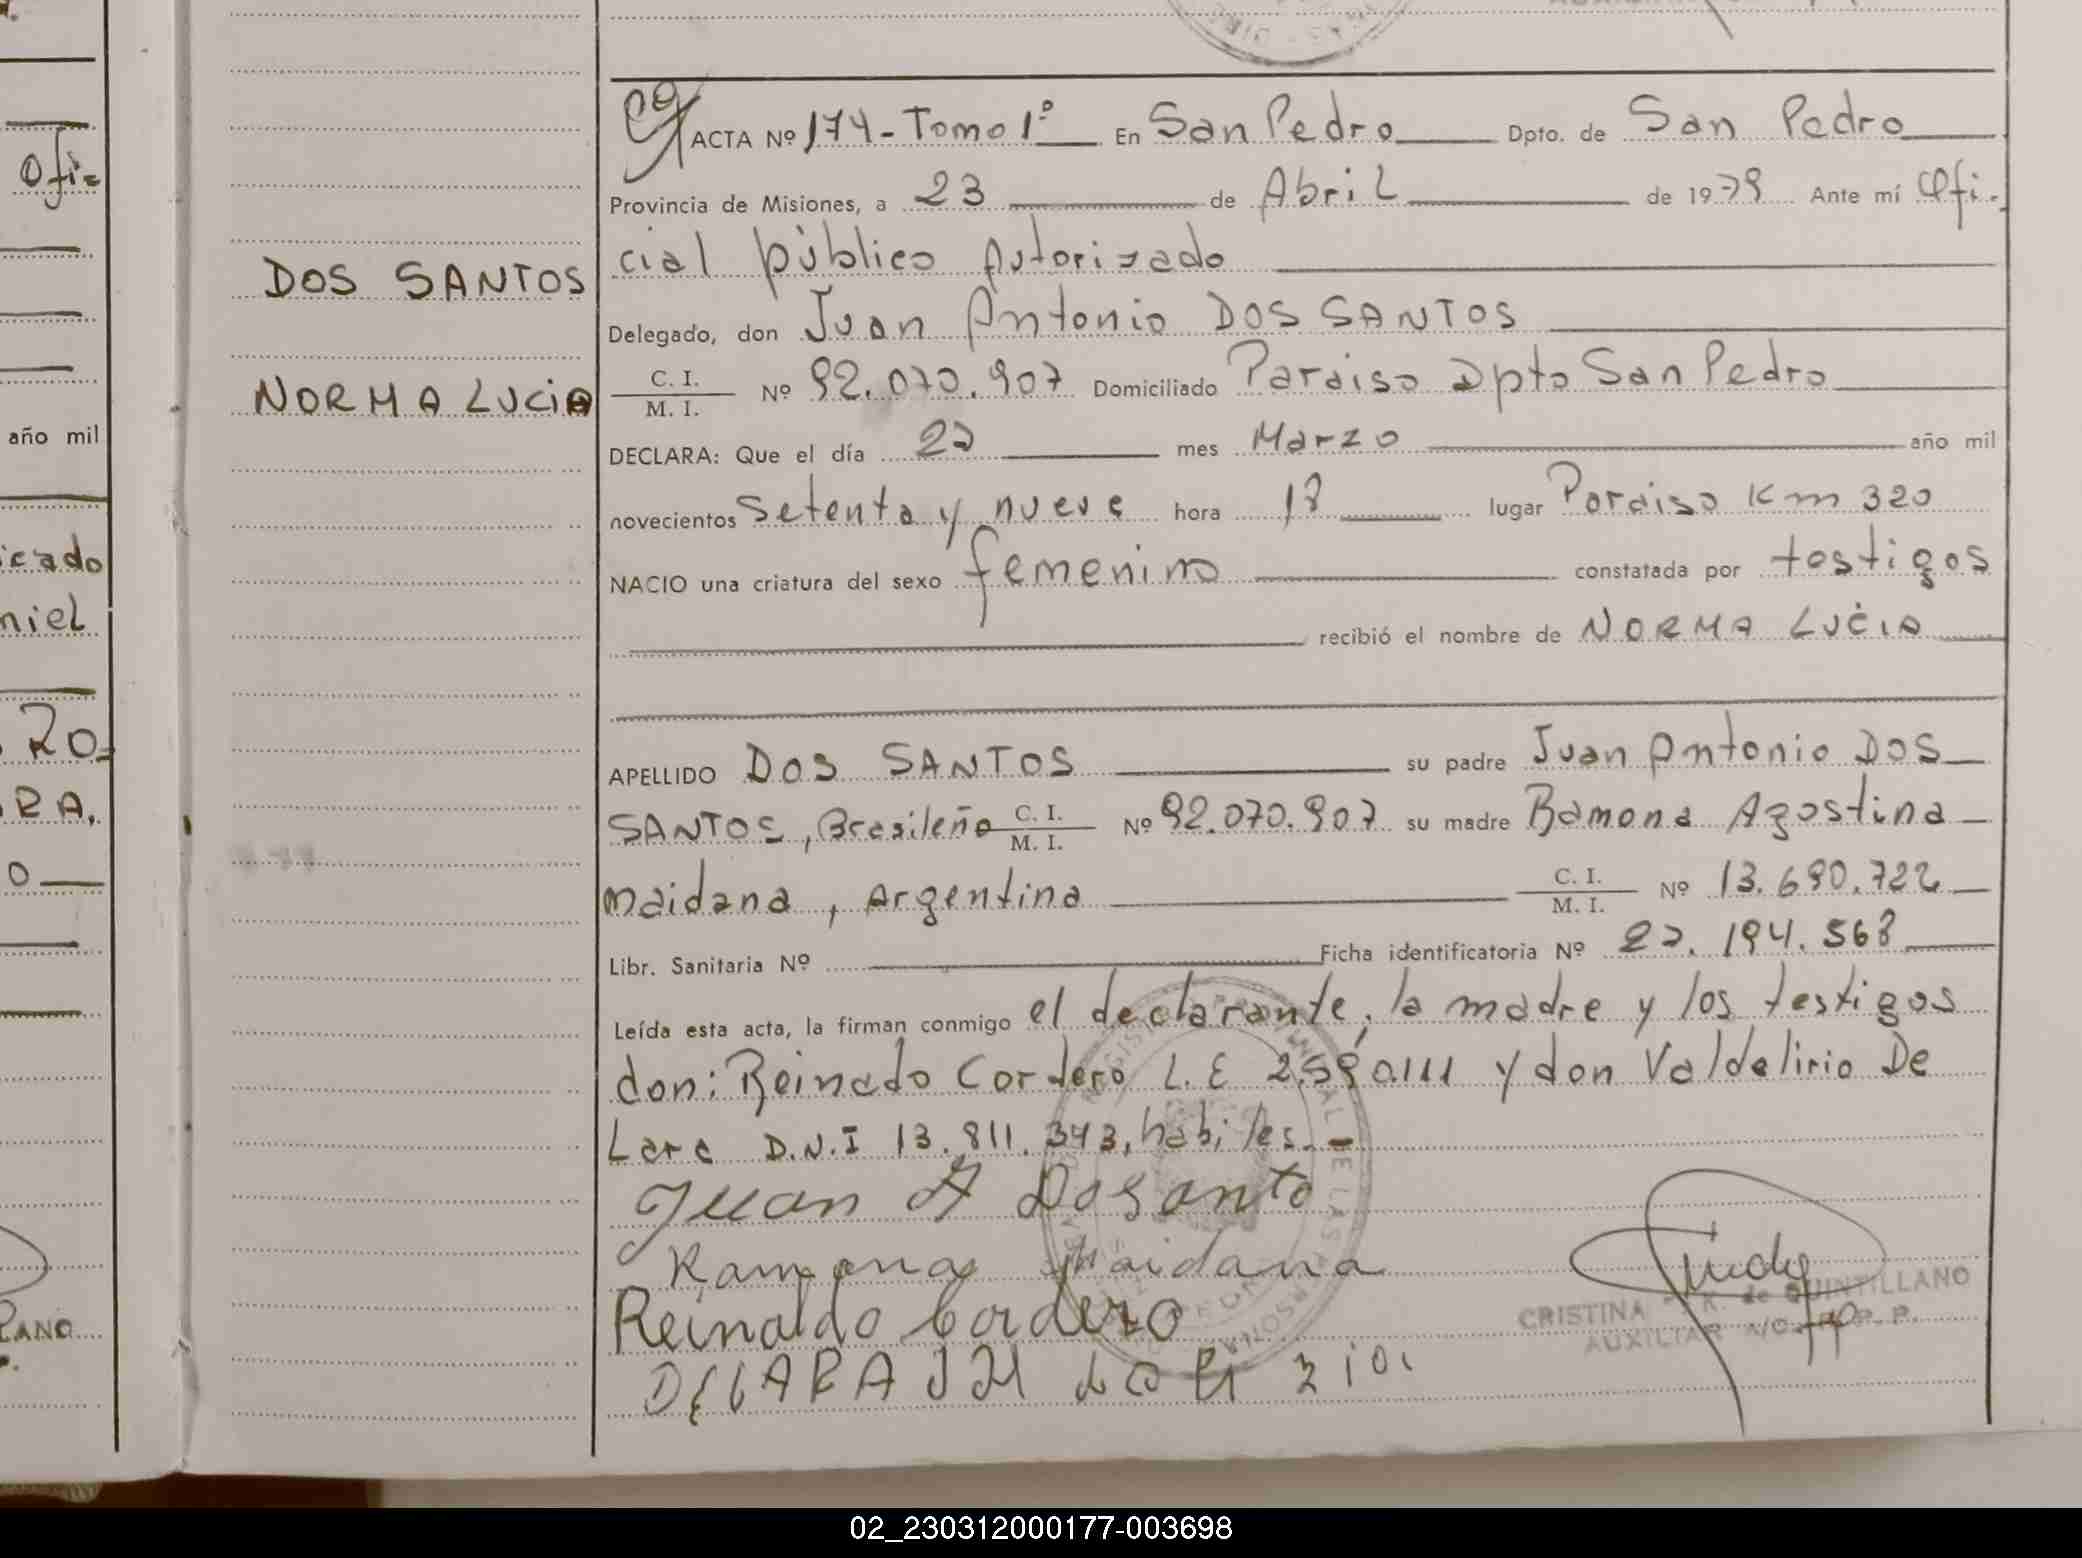 ofi-
año mil
icado
niel
RO-
ARA,
o
LANO
DOS SANTOS
NORMA LUCIA
ACTA Nº 174-Tomo 1º En San Pedro Dpto. de San Pedro
Provincia de Misiones, a 23 de Abril de 1979 Ante mí Ofi-
cial público Autorizado
Delegado, don Juan Antonio DOS SANTOS
C. I. / M. I. Nº 92.070.907 Domiciliado Paraiso Dpto San Pedro
DECLARA: Que el día 27 mes Marzo año mil
novecientos setenta y nueve hora 18 lugar Paraiso Km 320
NACIO una criatura del sexo femenino constatada por testigos
recibió el nombre de NORMA LUCIA
APELLIDO DOS SANTOS su padre Juan Antonio DOS
SANTOS, Brasileño C. I. / M. I. Nº 92.070.907 su madre Ramona Agostina
maidana, Argentina C. I. / M. I. Nº 13.690.722
Libr. Sanitaria Nº Ficha identificatoria Nº 27.194.568
Leída esta acta, la firman conmigo el declarante, la madre y los testigos
don: Reinado Cordero L.E 2.590.111 y don Valdelirio De
Lara D.N.I 13.811.343, habiles.-
Juan A Dosanto
Ramona Maidana
Reinaldo Cordero
CRISTINA K. de QUINTILLANO
AUXILIAR A/C. R.P.P.
02_230312000177-003698